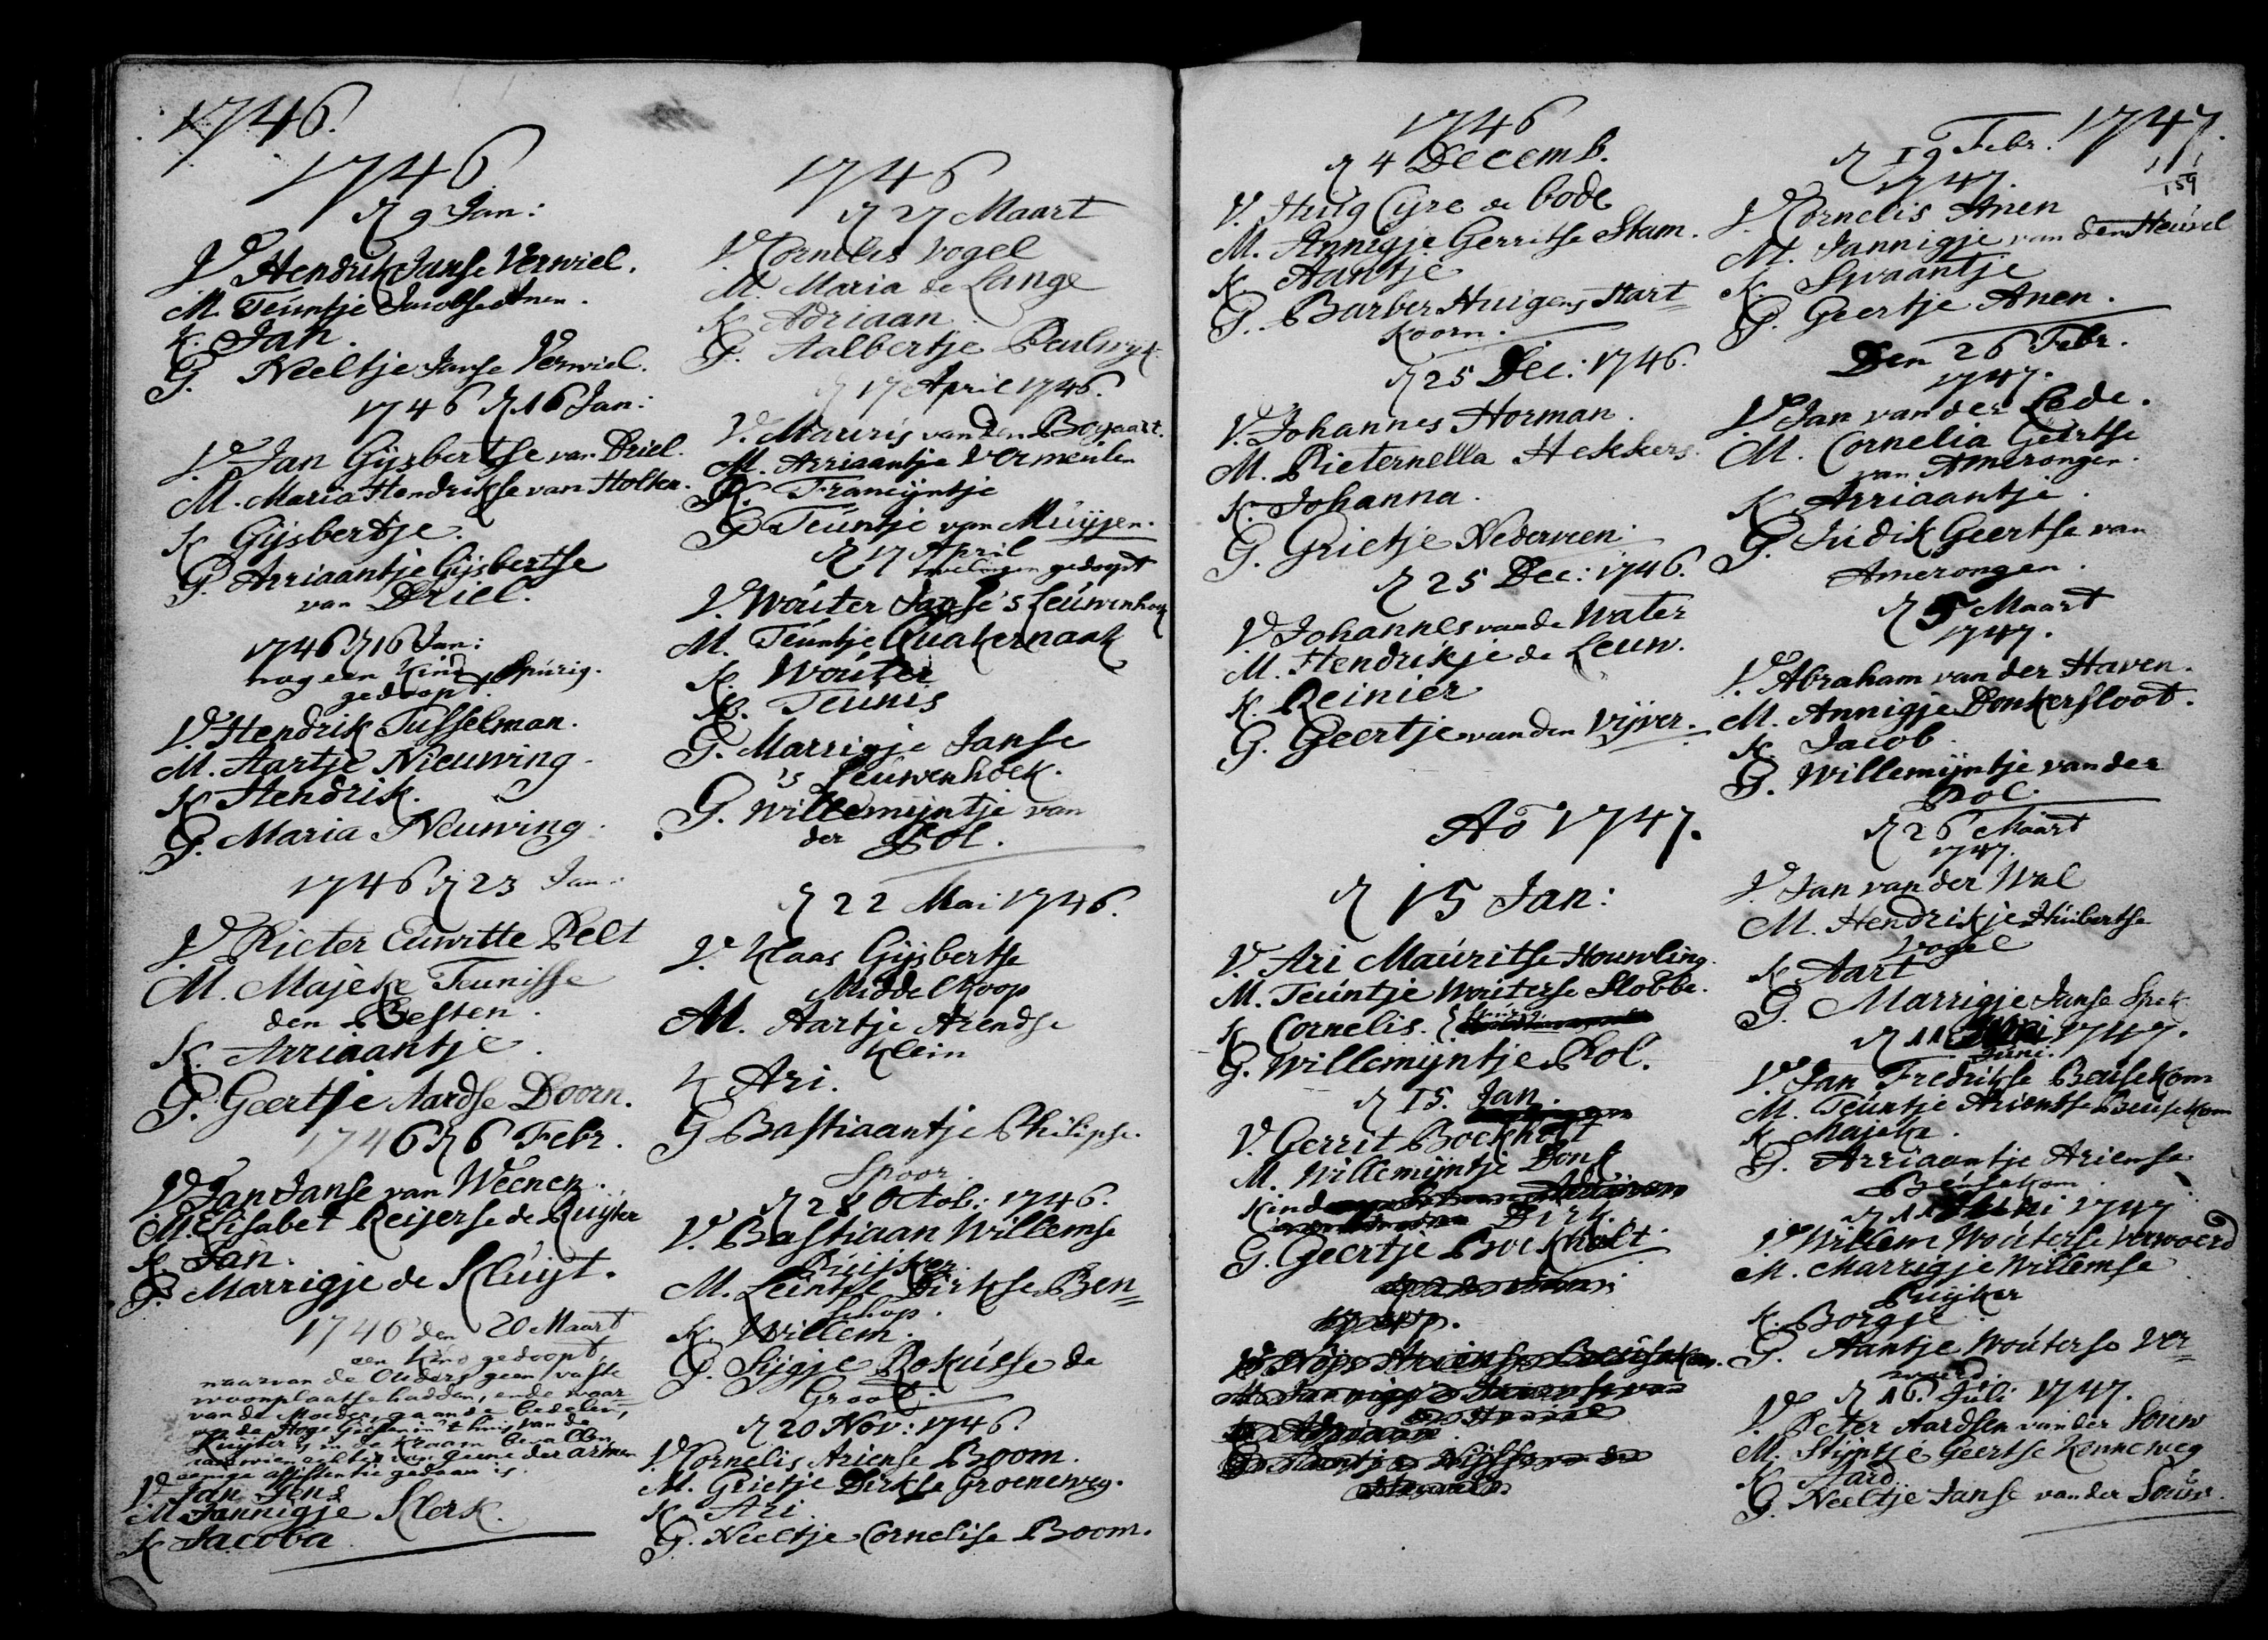 1746.
1746
d 9 Jan:
V Hendrik Janse Verwiel.
M. Teuntje Jacobse Anen.
K. Jan.
G. Neeltje Janse Verwiel.
1746 d 16 Jan:
V. Jan Gijsbertse van Driel.
M. Maria Hendrikse van Holten.
K Gijsbertje.
G. Arriaantje Gijsbertse
van Driel.
1746 d 16 Jan:
nog een Kind
gedoopt.
V. Hendrik Tusselman.
M. Aartje Nieuwing.
K Hendrik.
G. Maria Neuwing.
1746 d 23 Jan:
V. Pieter Euwitte Pelt
M. Majeke Teunisse
den Besten.
K. Arriaantje.
G. Geertje Aardse Doorn.
1746 d 6 Febr.
V Jan Janse van Weenen.
M. Elisabet Reijerse de Ruyter
K. Jan.
G. Marrigje de Kluijt.
1746 den 20 Maart
een Kind gedoopt,
waarvan de Ouders geen vaste
woonplaatse hadden, ende waar
van de Moeder, gaande bedelen,
op de Hoge Giesen in 't huis van de
Ruyters, in de Kraam bevallen,
aan wien echter van geene der armen
eenige assistentie gedaan is.
V. Jan
M Jannigje Klerk.
K Jacoba
1746
d 27 Maart
V. Cornelis Vogel
M. Maria de Lange
K Adriaan.
G. Aalbertje
d 17 April 1746.
V. Mauris van den Bogaart.
M. Arriaantje Vermeulen
K. Francijntje
G Teuntje van Muijen.
d 17 April
twelingen gedoopt
V. Wouter Janse 's Leuwenhoek
M. Teuntje Quakernaak
K. Wouter
K. Teunis
G. Marrigje Janse
's Leuwenhoek.
G. Willemijntje van
der Pol.
d 22 Mai 1746.
V. Klaas Gijsbertse
Middelkoop
M. Aartje Arendse
Klein
K Ari.
G Bastiaantje Philipse.
Spoor
d 28 Octob: 1746.
V. Bastiaan Willemse
Puijker
M. Leintje Dirkse Ben=
schop.
K. Willem.
G. Sijgje Rokusse de
Groot.
d 20 Nov: 1746.
V. Cornelis Ariense Boom.
M. Grietje Dirkse Groeneweg.
K. Ari.
G. Neeltje Cornelise Boom.
1746
d 4 Decemb.
V. Huig Cijre de bode
M. Annigje Gerritse Stam.
K. Aantje
G. Barber Huigens Hart=
koorn.
d 25 Dec: 1746.
V. Johannes Horman.
M. Pieternella Hekkers.
K. Johanna.
G. Grietje Nederveen.
d 25 Dec: 1746.
V. Johannes van de Water
M. Hendrikje de Leuw.
K. Reinier
G. Geertje van den Vijver.
Ao 1747.
d 15 Jan:
V. Ari Mauritse Houwling.
M. Teuntje Wouterse Slobbe.
K Cornelis.
G. Willemijntje Pol.
d 15. Jan.
V. Gerrit Bockholt
M. Willemijntje Donk
Kind
Dirk.
G. Geertje Bockholt.
1747.
1747.
159
d 19 Febr.
1747.
V. Cornelis Anen
M. Jannigje van den Heuvel
K. Swaantje
G. Geertje Anen.
Den 26 Febr.
1747.
V. Jan van der Lede.
M. Cornelia Geertse
van Amerongen.
K. Arriaantje.
G. Judik Geertse van
Amerongen.
d 5 Maart
1747.
V. Abraham van der Haven.
M. Annigje Donkersloot.
K. Jacob.
G. Willemijntje van der
Pol.
d 26 Maart
1747.
V. Jan van der Wal
M. Hendrikje Huibertse
Vogel
K. Aart
G. Marrigje Janse Spek
d 11 1747.
Juni.
V. Jan Fredrikse Beusekom
M. Teuntje Arientse Beusekom
K. Majeke.
G. Arriaantje Ariense
Beusekom.
d 11 Juni 1747
V. Willem Wouterse Verwoerd
M. Marrigje Willemse
Puijker
K. Borgje.
G. Aantje Wouterse Ver=
woerd.
d 16. Juli 1747.
V. Peter Aardsen van der Souw
M. Stijntje Geertse Kenneweg
K. Aard.
G. Neeltje Janse van der Souw.